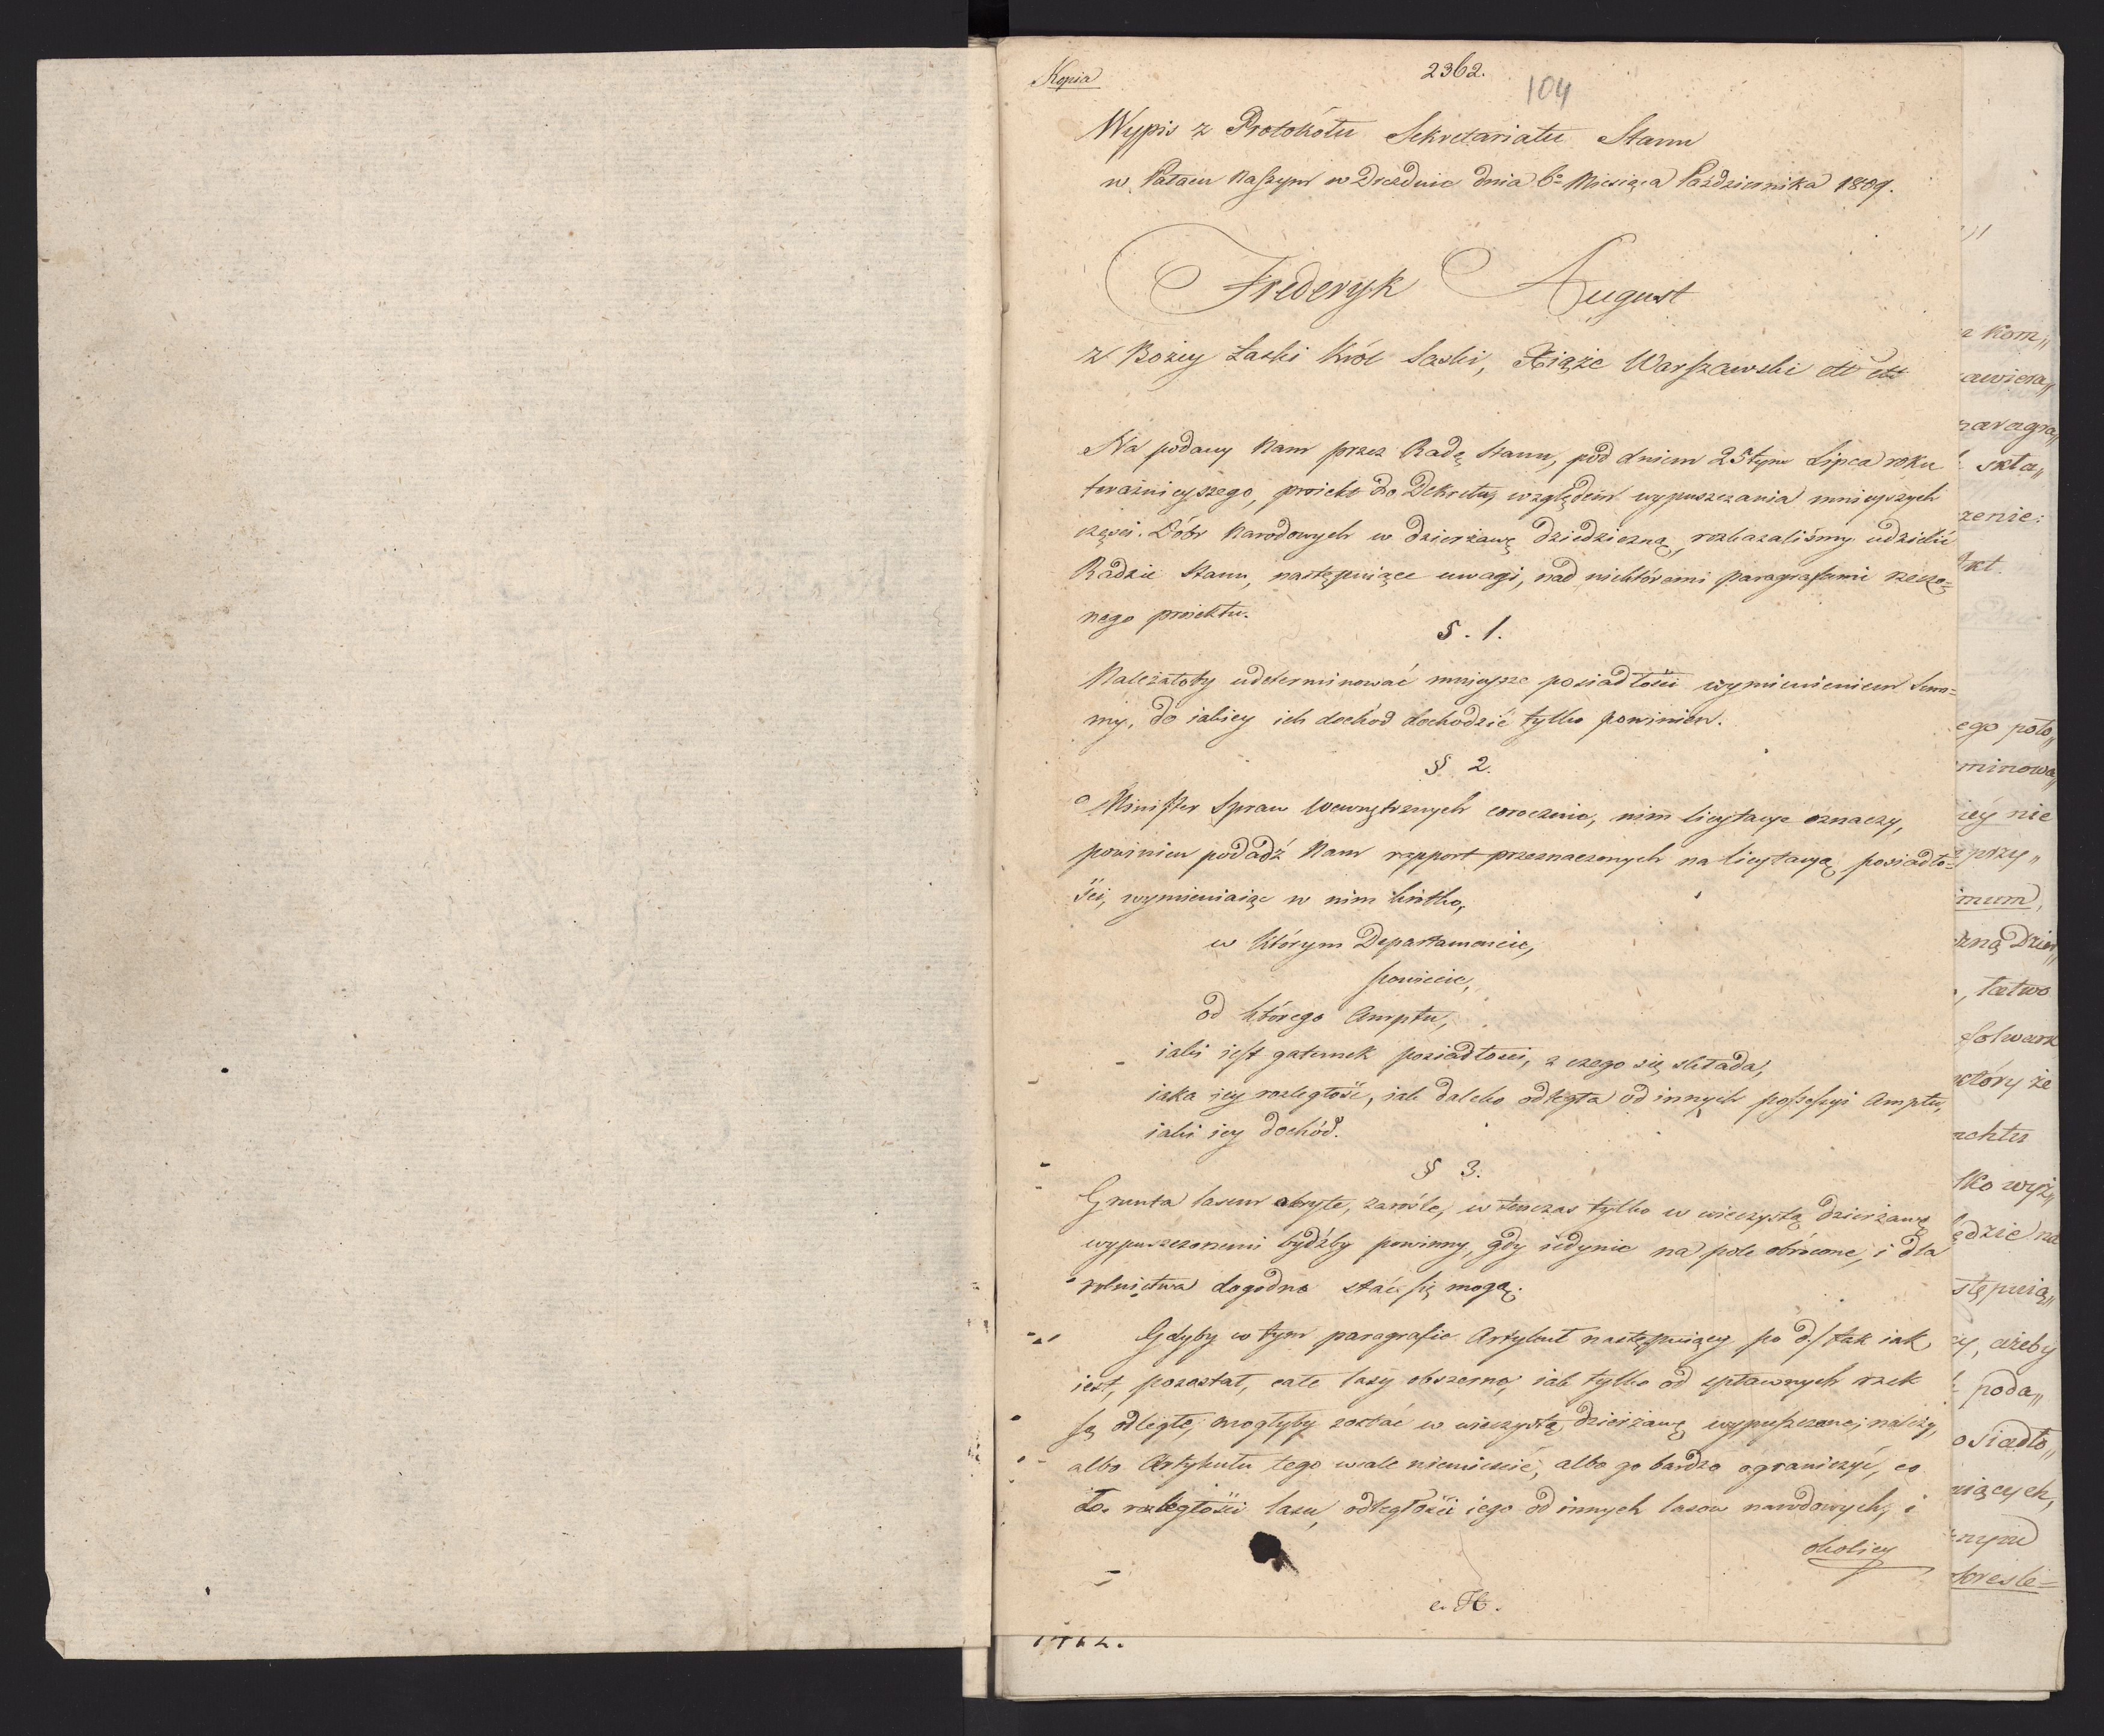 Kopia
2362.
104
Wypis z Protokółu Sekretariatu Stanu
w Pałacu Naszym w Dreźdnie dnia 6º Miesiąca Października 1809.
Frederyk August
z Bożey Łaski Król Saski, Xiąże Warszawski etc etc
Na podany Nam przez Radę Stanu, pod dniem 25tym Lipca roku
teraźnieyszego, proiekt do Dekretu, względem wypuszczania mnieyszych
części Dóbr Narodowych w dzierżawę dziedziczną, rozkazaliśmy udzielić
Radzie Stanu, następuiące uwagi, nad niektóremi paragrafami rzeczo=
nego proiektu.
§. 1.
Należałoby udeterminować mnieysze posiadłości wymienieniem Sum=
my, do iakiey ich dochód dochodzić tylko powinien.
§ 2.
Minister Spraw Wewnętrznych corocznie, nim licytacye oznaczy,
powinien podadź Nam rapport przeznaczonych na licytacyą posiadło=
ści, wymieniaiąc w nim krótko,
w którym Departamencie,
powiecie,
od którego Amptu,
iaki iest gatunek posiadłości, z czego się składa,
iaka iey rozległość, iak daleko odległa od innych possessyi Amptu,
iaki iey dochód.
§ 3.
Grunta lasem okryte, zarośle, w tenczas tylko w wieczystą dzierżawę
wypuszczonemi bydźby powinny, gdy iedynie na pole obrócone, i dla
rolnictwa dogodne stać się mogą.
Gdyby w tym paragrafie Artykuł następuiący po d./ tak iak
iest, pozostał, całe lasy obszerne, iak tylko od spławnych rzek
są odległe, mogłyby zostać w wieczystą dzierżawę wypuszczone; należy,
albo Artykułu tego wcale nieumieścić, albo go bardzo ograniczyć, co
do rozległości lasu, odległości iego od innych lasow narodowych, i
okolicy
a kom„
zawiera„
paragra„
skła„
zenie:
ego poło„
minowa„
iéy nie
przy„
mum,
zną Dzier„
, łatwo
folwark
który że
achter
lko wyż„
ędzie na
stępuią„
cy, ażeby
poda„
osiadło„
uiących,
nym
określe=